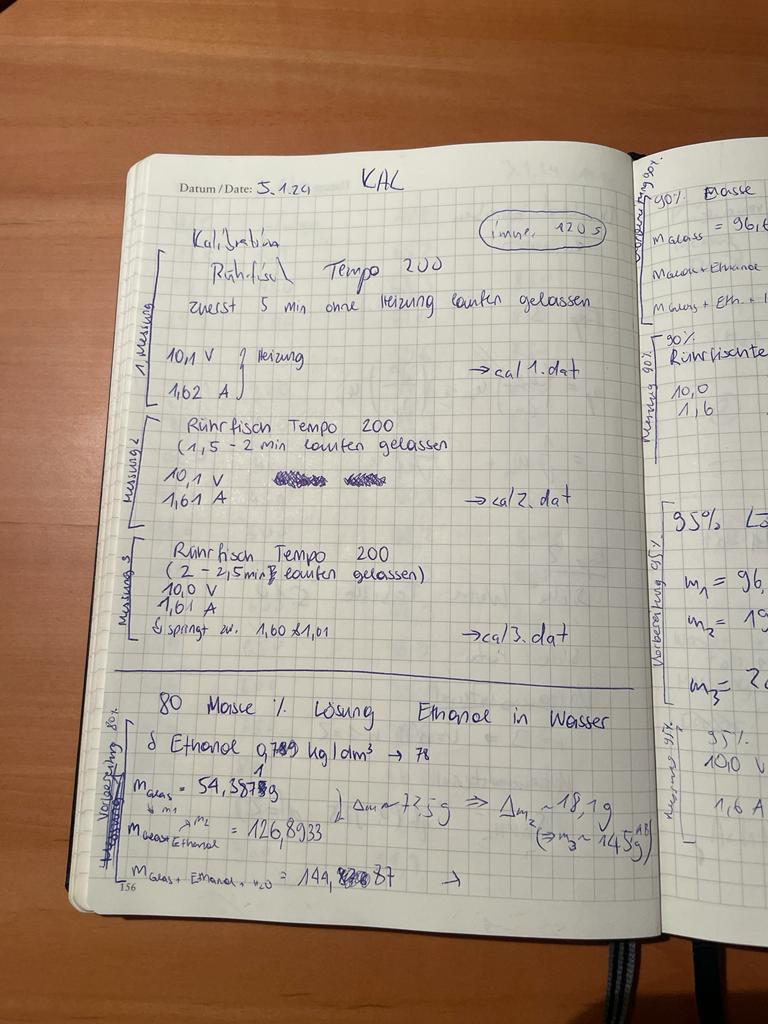 Datum / Date: 5.1.24 KAL
Kalibration
immer 120 s
1. Messung
Rührfisch Tempo 200
zuerst 5 min ohne Heizung laufen gelassen
10,1 V } Heizung
1,62 A
→ cal 1.dat
Messung 2
Rührfisch Tempo 200
(1,5 - 2 min laufen gelassen
10,1 V
1,61 A → cal 2.dat
Messung 3
Rührfisch Tempo 200
(2 - 2,5 min laufen gelassen)
10,0 V
1,61 A
↳ springt zw. 1,60 & 1,61 → cal 3.dat
80 Masse % Lösung Ethanol in Wasser
Vorbereitung 80%
δ Ethanol 0,789 kg/dm³ → 78
m Glas = 54,387 g
↓ m1
m Glas + Ethanol = 126,8933
↗ m2
Δm ~ 72,5 g ⇒ Δm2 ~ 18,1 g
(⇒ m3 ~ 145 g)
m Glas + Ethanol + H2O = 144, 87 →
156
Vorbereitung 90%
90% Masse
m Glas = 96,
m Glas + Ethanol
m Glas + Eth. +
Messung 90%
90%
Rührfisch Te
10,0
1,6
Vorbereitung 95%
95% Lö
m1 = 96,
m2 = 19
m3 = 2
Messung 95%
95%
10,0 V
1,6 A